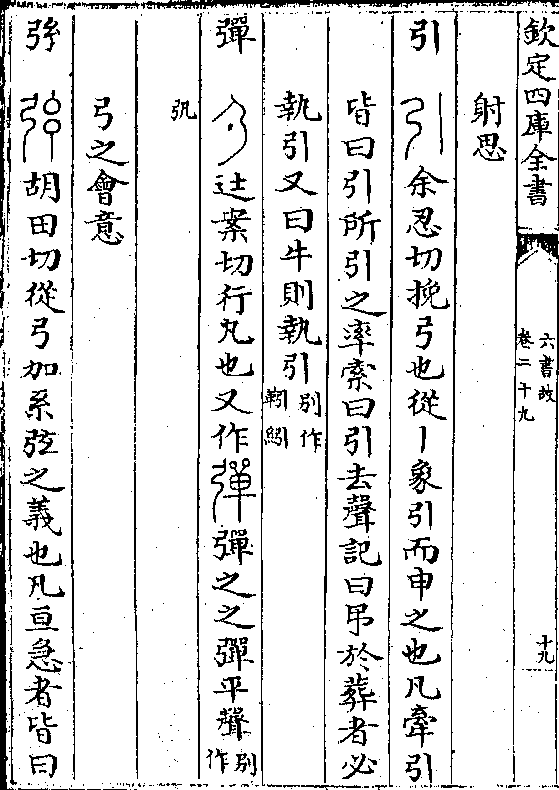 欽定四庫全書
六書故
卷二十九
十九
射思
引 余忍切挽弓也從丨象引而申之也凡牽引
皆曰引所引之率索曰引去聲記曰弔於葬者必
執引又曰牛則執引别作靷紖
彈 辻案切行丸也又作彈彈之之彈平聲别作
𢎫
弓之會意
弦 胡田切從弓加系弦之義也凡亘急者皆曰